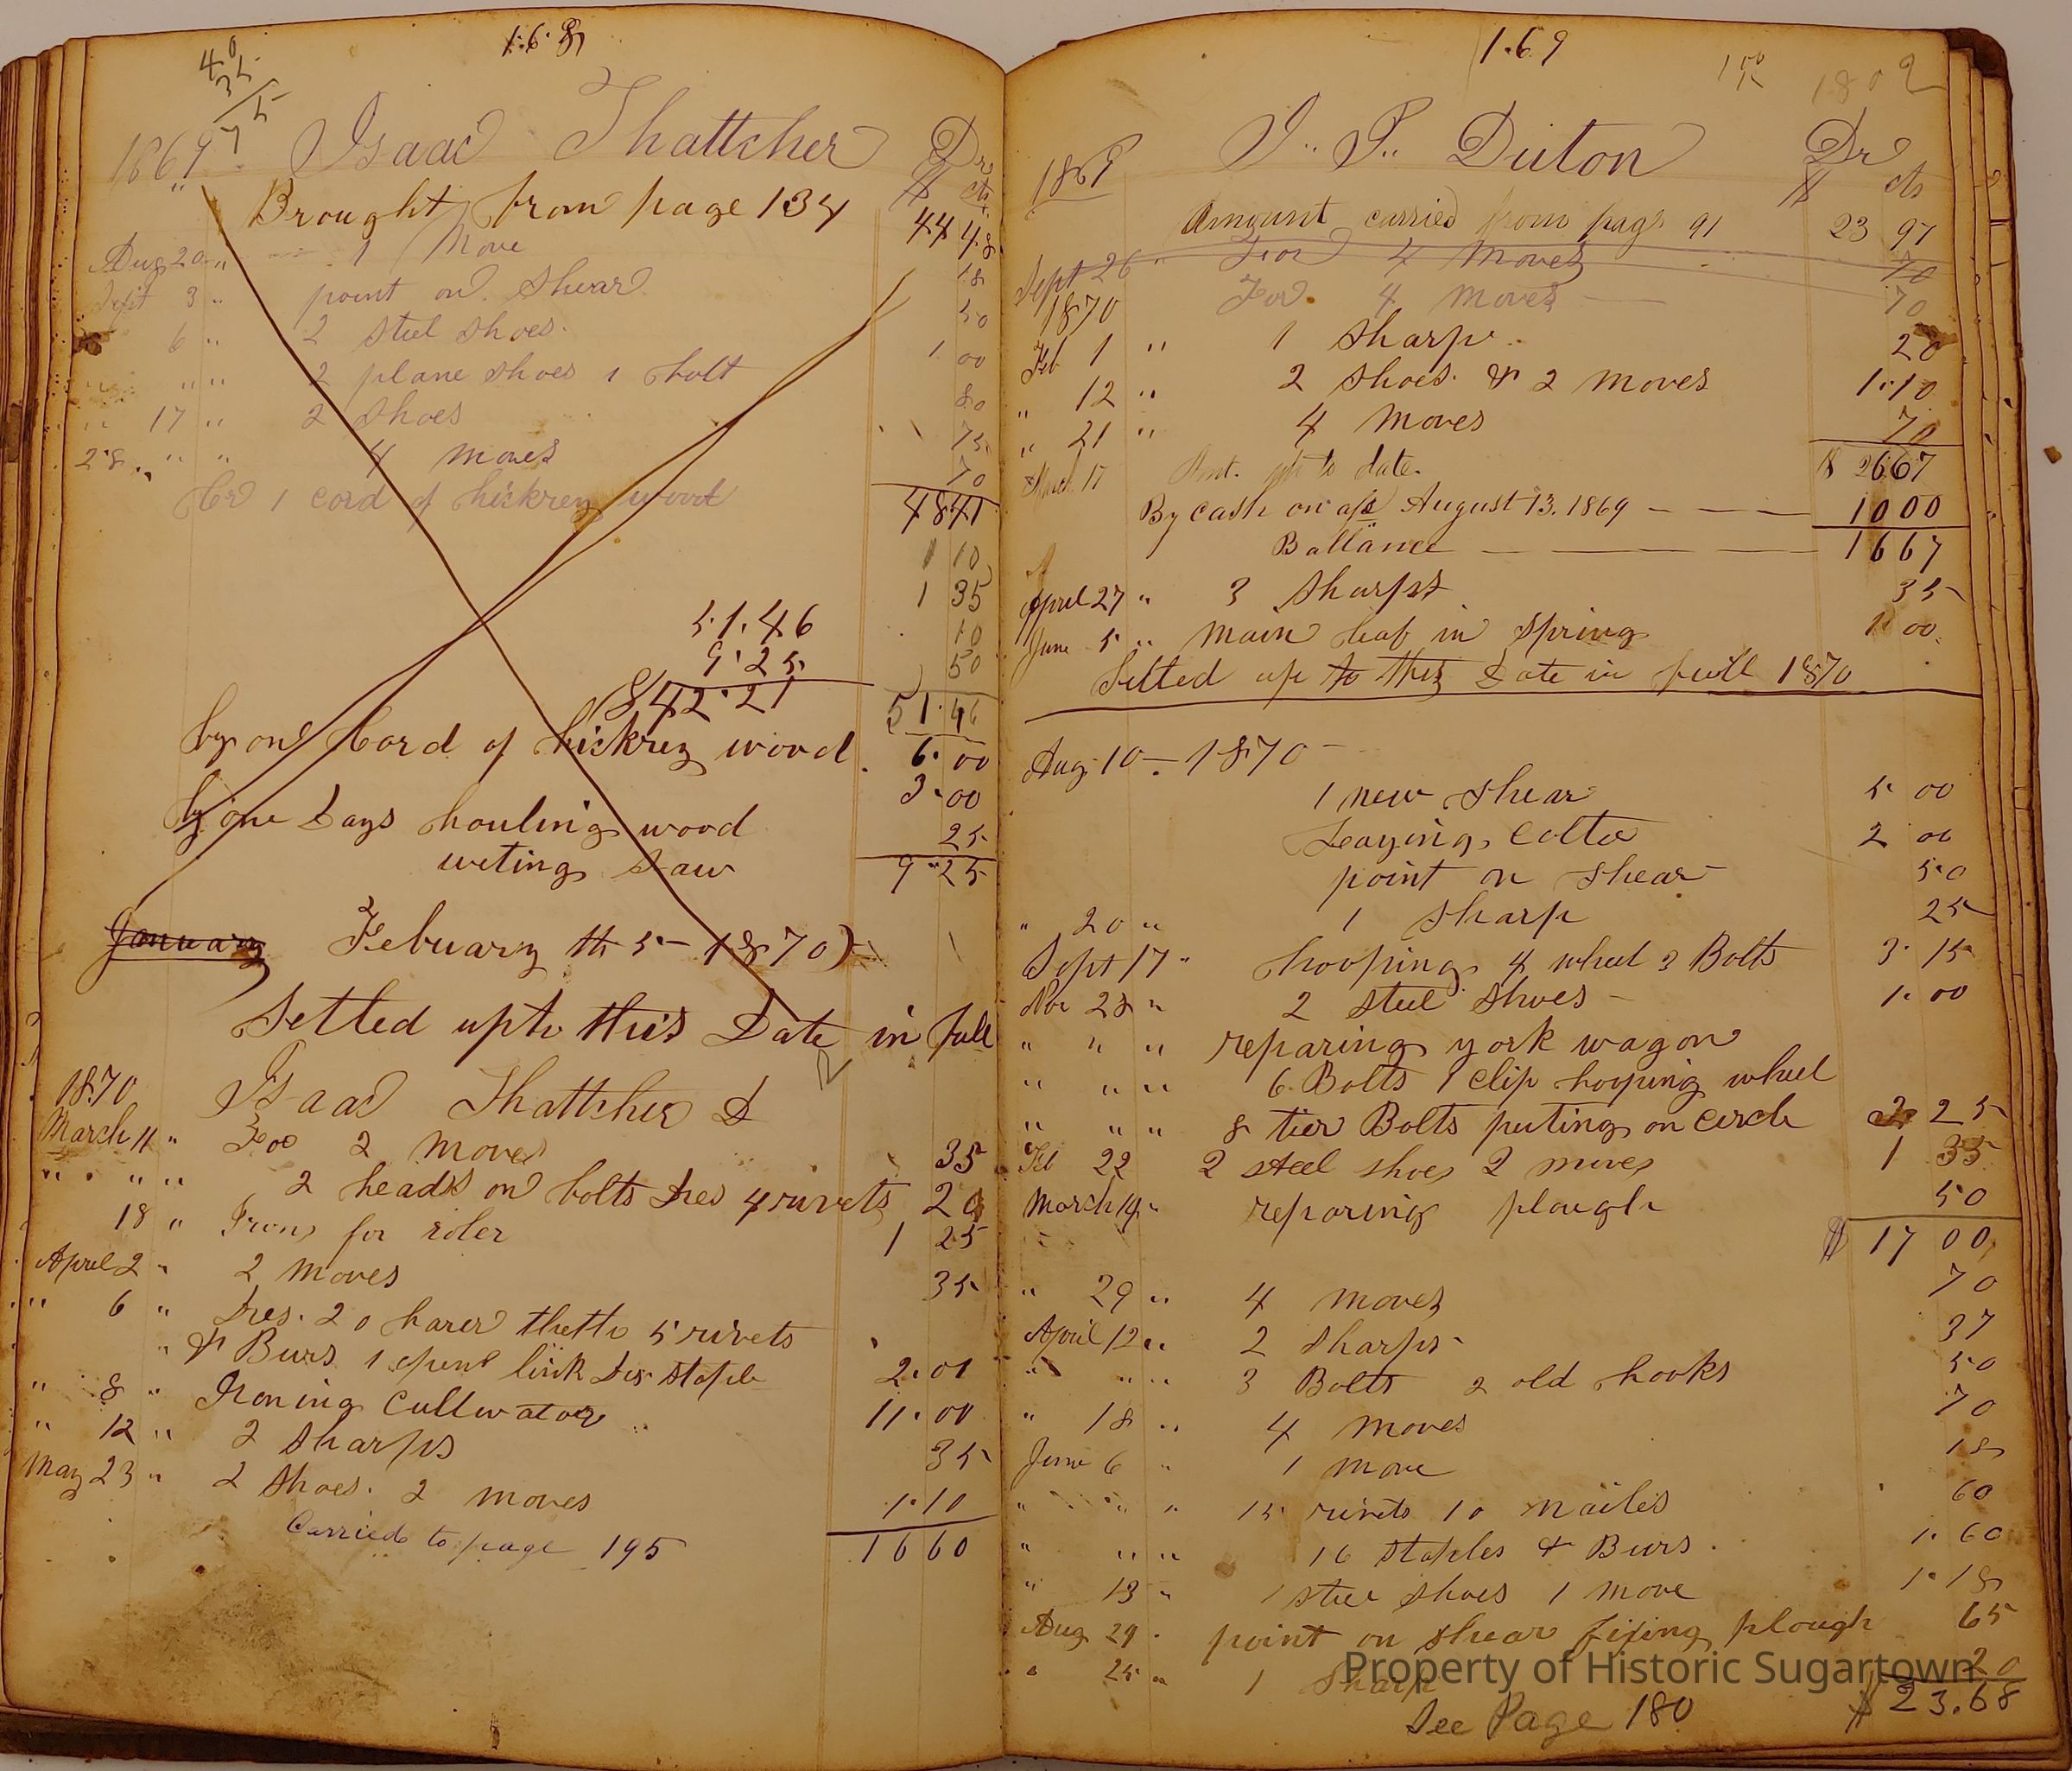 1.6.8
40
35
75
1869 Isaac Thattcher Dr
$ cts
Brought from page 134 44 48
Aug 20 " 1 Move 18
Sept 3 " point on Shear 50
" 6 " 2 steel shoes. 1 00
" " " 2 plane shoes 1 bolt 80
" 17 " 2 shoes 75
28 " " 4 moves 70
Cr 1 cord of hickrey wood 48 41
1 10
1 35
10
50
51.46
9.25
$42.21
51.46
by one Cord of hickrey wood 6.00
by one Days houling wood 3.00
weting saw 25
9.25
January Febuary th 5 - 1870
Setled upto this Date in full
1870 Isaac Thattcher D
March 11 " For 2 moves 35
" " " 2 heads on bolts Dres 4 rivets 20
18 " Irons for roler 1 25
April 2 " 2 moves 35
" 6 " Dres. 20 harer theth 5 rivets
" & Burs 1 open link Dr staple 2.01
" 8 " Ironing Cultwator 11.00
" 12 " 2 sharps 35
May 23 " 2 shoes. 2 moves 1.10
Carried to page 195 16 60
1.69
1869 J.. P.. Duton Dr
$ cts
Amount carried from page 91 23 97
Sept 26 " For 4 Moves 70
1870 For. 4 moves 70
Feb 1 " 1 sharp 20
" 12 " 2 shoes & 2 moves 1.10
" 21 " 4 moves 70
March 17 Amt. up to date. $ 26 67
By cash on a/c August 13. 1869 10 00
Ballance 16 67
April 27 " 3 sharpst 35
June 5 " main leaf in spring 1 00
Setled up to this Date in full 1870
Aug. 10 - 1870 -
1 new shear 5 00
Leaying Colter 2 00
point on shear 50
" 20 " 1 sharp 25
Sept 17 " hooping 4 wheel 3 Bolts 3.15
Nov 28 " 2 steel shoes 1.00
" " " reparing york wagon
" " " 6 Bolts 1 clip hooping wheel
" " " 8 tier Bolts puting on circle 2 25
Feb 22 2 steel shoes 2 moves 1 35
March 14 " reparing plough 50
$ 17 00
" 29 " 4 moves 70
April 12 " 2 sharps 37
" " " 3 Bolts 2 old hooks 50
" 18 " 4 moves 70
June 6 " 1 move 18
" " " 15 rivets 10 nailes 60
" " " 16 staples & Burs. 1.60
" 13 " 1 stee shoes 1 move 1.18
Aug 29 point on shear fixing plough 65
" 25 " 1 sharp 20
Property of Historic Sugartown
See Page 180 $ 23.68